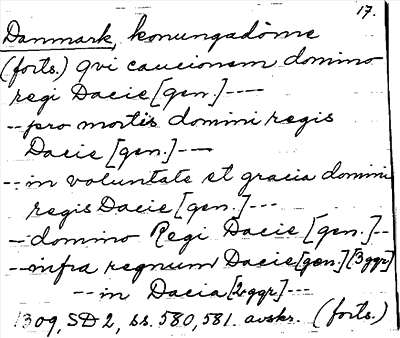 17.
Danmark, konungadöme
(forts.) qvi caucionem domino
regi Dacie [gen.] ----
-- pro mortis domini regis
Dacie [gen.] ---
--- in voluntate et gracia domini
regis Dacie [gen.] ---
-- domino Regi Dacie [gen.] --
--- infra regnum Dacie [gen.] [3ggr]
--- in Dacia [2ggr] ---
1309, SD 2, ss. 580, 581. avskr. (forts.)